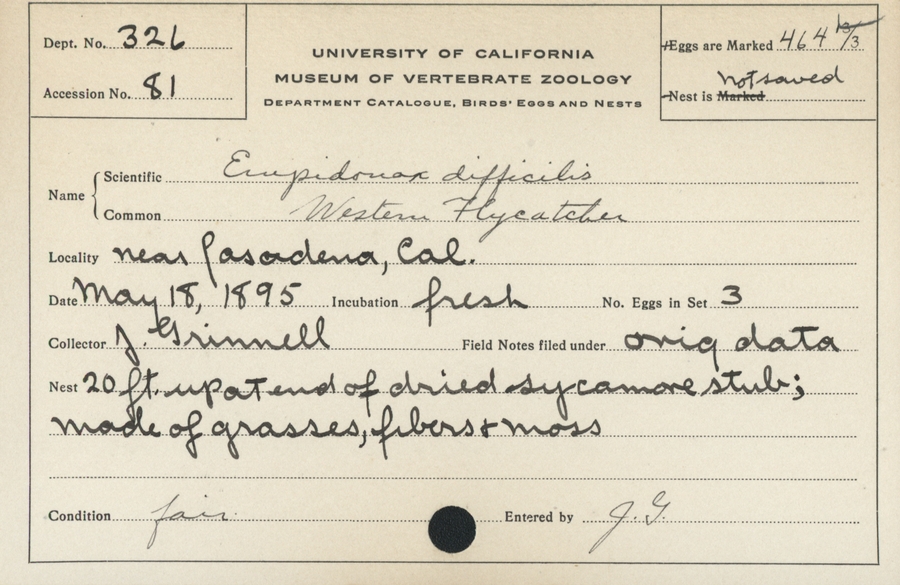 Dept. No. 326
Accession No. 81
UNIVERSITY OF CALIFORNIA
MUSEUM OF VERTEBRATE ZOOLOGY
DEPARTMENT CATALOGUE, BIRDS' EGGS AND NESTS
Eggs are Marked 464 /3
not saved
Nest is Marked
Name
Scientific Empidonax difficilis
Common Western Flycatcher
Locality near Pasadena, Cal.
Date May 18, 1895 Incubation fresh No. Eggs in Set 3
Collector J. Grinnell Field Notes filed under orig data
Nest 20 ft. up at end of dried sycamore stub;
made of grasses, fibers + moss
Condition fair Entered by J. G.